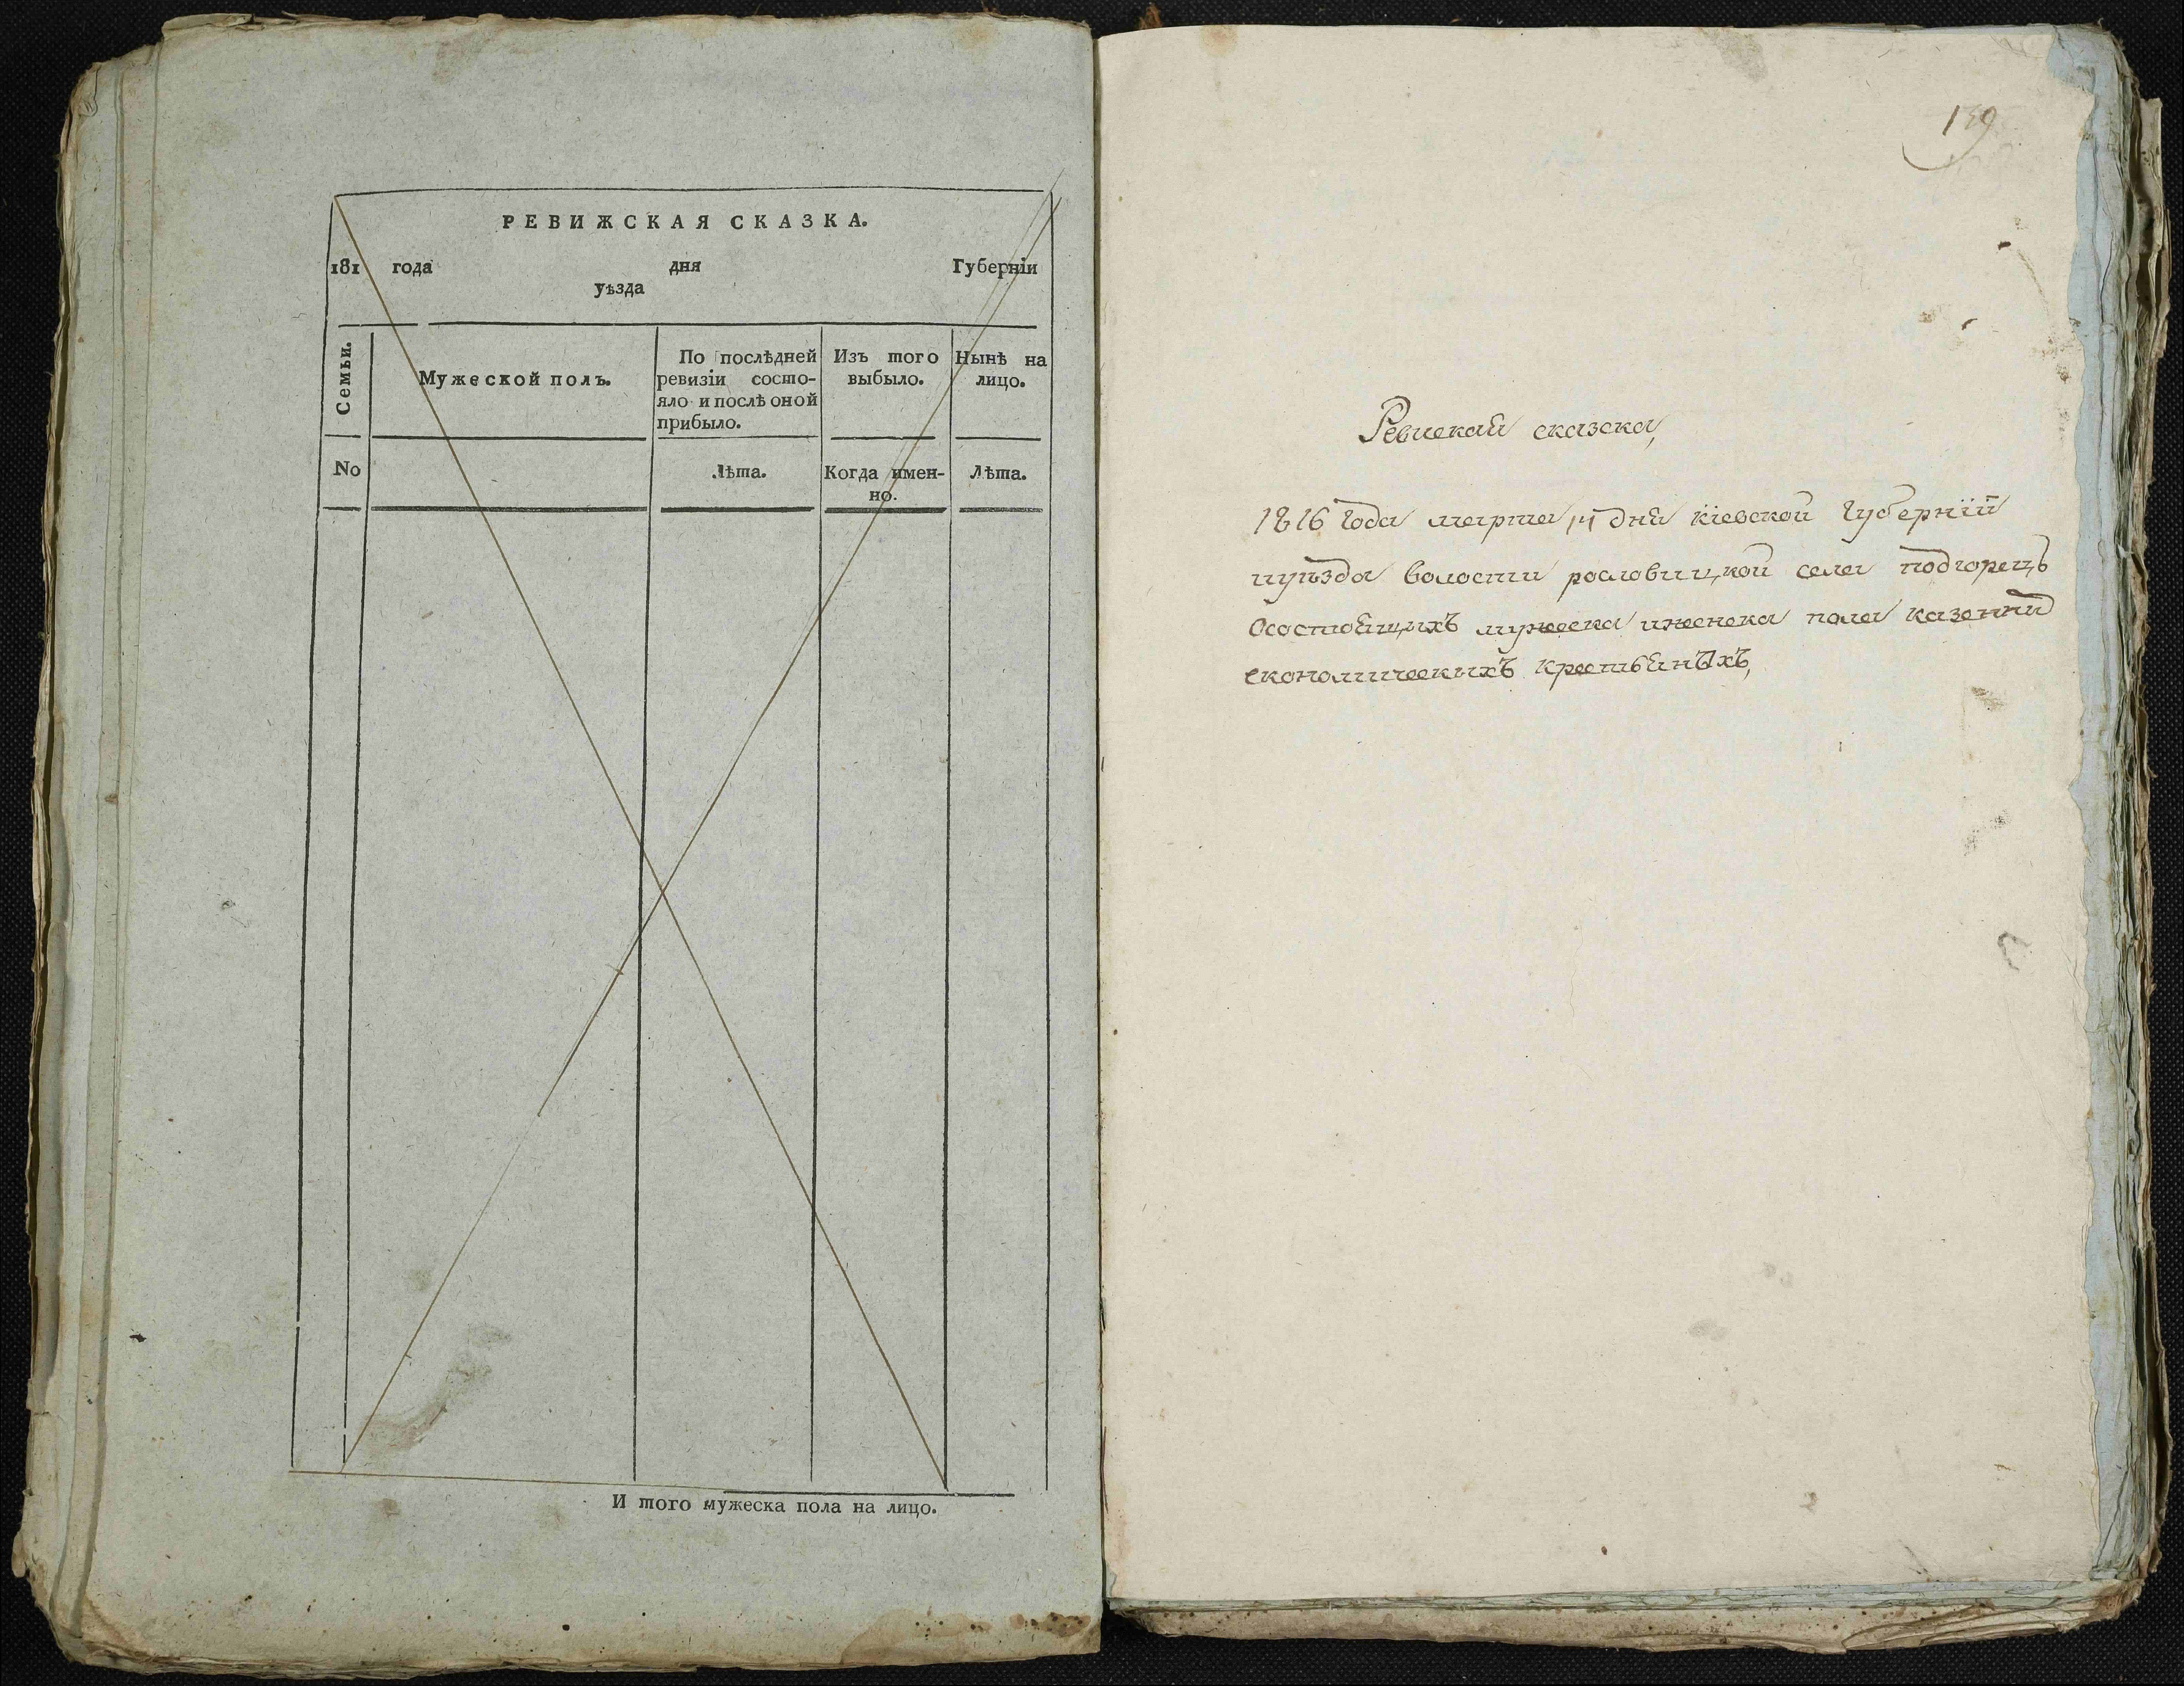 РЕВИЖСКАЯ СКАЗКА.
181 года дня Губерніи
уѣзда
Семьи.
Мужеской полъ.
По послѣдней ревизіи состо-
яло и послѣ оной
прибыло.
Изъ того
выбыло.
Нынѣ на
лицо.
No
Лѣта.
Когда имен-
но.
Лѣта.
И того мужеска пола на лицо.
139
Ревиская сказка,
1816 года марта дня кіевской губерніи
иуѣзда волости рословицкой села подгорецъ
Осостоящихъ мужеска иженска пола казенни
економическихъ крестьянѣхъ,